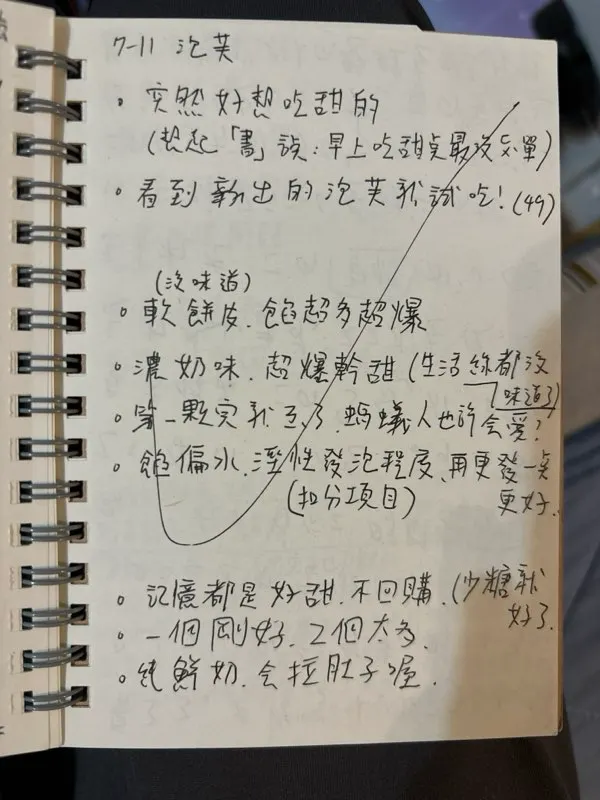 7-11 泡芙
。突然好想吃甜的
(想起「書」說：早上吃甜点最沒负單)
。看到新出的泡芙就試吃！(49)
(沒味道)
。軟餅皮、餡超多超爆
。濃奶味、超爆幹甜 (生活絲都沒味道了)
。第一顆完我 了、螞蟻人也許會愛？
。餡偏水、溼性發泡程度、再更發一点更好、
(扣分項目)
。記憶都是好甜、不回購、(少糖就好了、
。一個剛好、2個太多、
。純鮮奶、会拉肚子喔、